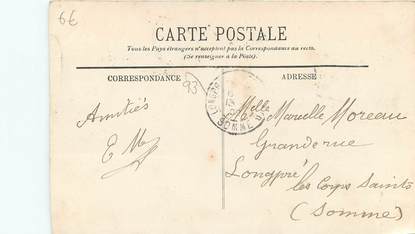 6€
CARTE POSTALE
Tous les Pays étrangers n'acceptent pas la Correspondance au recto.
(Se renseigner à la Poste).
CORRESPONDANCE
ADRESSE
93
Amitiés
E M
LONGPRÉ
SOMME
Melle Marcelle Moreau
Grande rue
Longpré
les Corps Saints
(Somme)